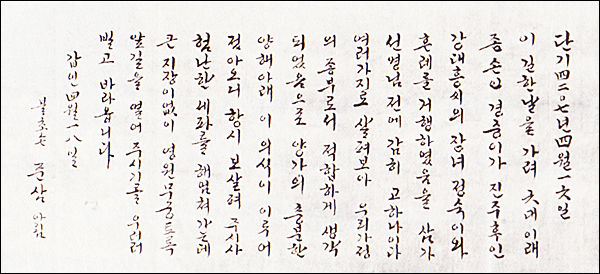 단기 년四월一六일
이 길한 날을 가려 六대이래
종손인 경중이가 진주후인
강대흥씨의 장녀 정숙이와
혼례를 거행하였음을 삼가
선영님 전에 감히 고하나이다
여러가지로 살펴보아 우리가정
의 종부로서 적합하게 생각
되었음으로 양가의 충분한
양해아래 이 의식이 이루어
젔아오니 항시 보살펴 주시사
험난한 세파를 헤엄쳐가는데
큰 지장이없이 영원무궁토록
앞길을 열어 주시기를 우러러
빌고 바라옵니다
갑인四월一八일
불초손 준삼 아룀